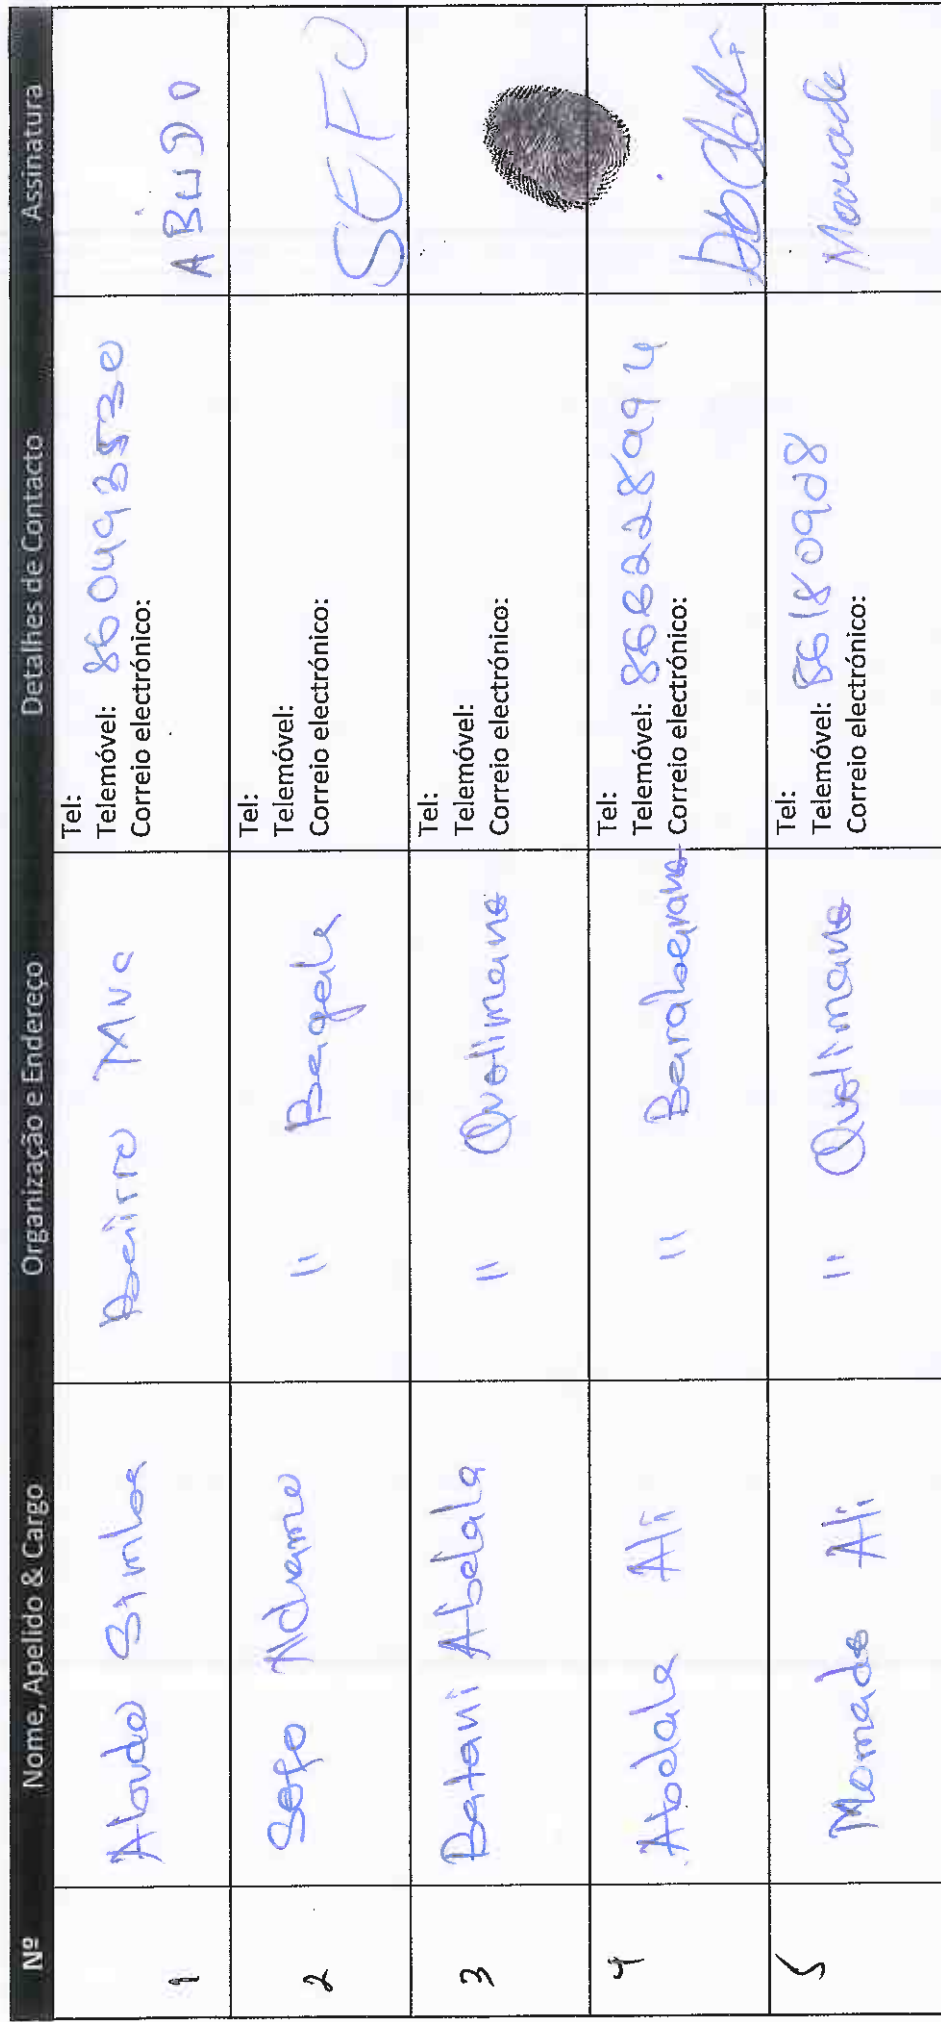 Nº Nome, Apelido & Cargo Organização e Endereço Detalhes de Contacto Assinatura
1 Abudo Simba Bairro Muc Tel:
Telemóvel: 860493530
Correio electrónico:
ABUDO
2 Sefo Adramo " Bagala Tel:
Telemóvel:
Correio electrónico:
SEFO
3 Batani Abdala " Quelimane Tel:
Telemóvel:
Correio electrónico:
4 Abdala Ali " Barabarane Tel:
Telemóvel:
Correio electrónico:
5 Momade Ali " Quelimane Tel:
Telemóvel: 861809028
Correio electrónico:
Momade